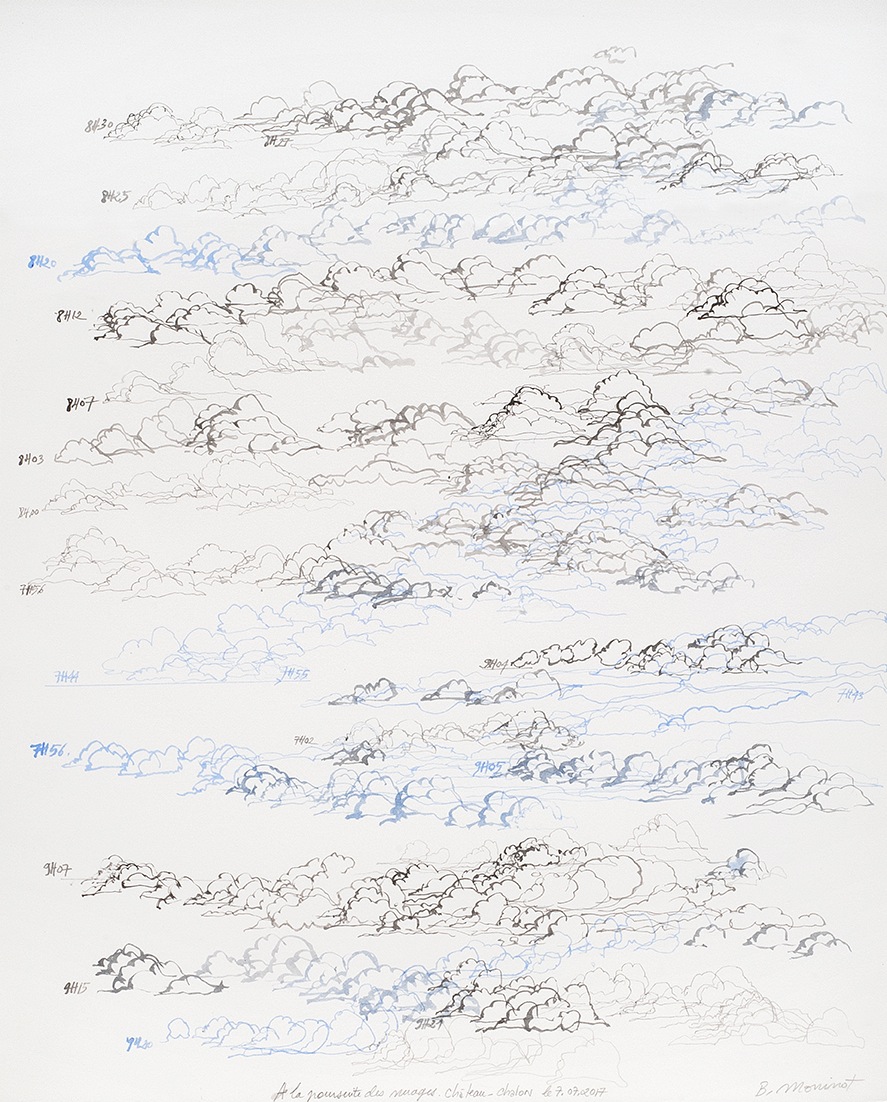 8H30
8H27
8H25
8H20
8H12
8H07
8H03
8H00
7H56
7H44
7H55
9H04
7H43
7H56.
7H02
9H05
9H07
9H15
9H21
9H20
A la poursuite des nuages. Château-Chalon le 7.07.2017
B. Moninot